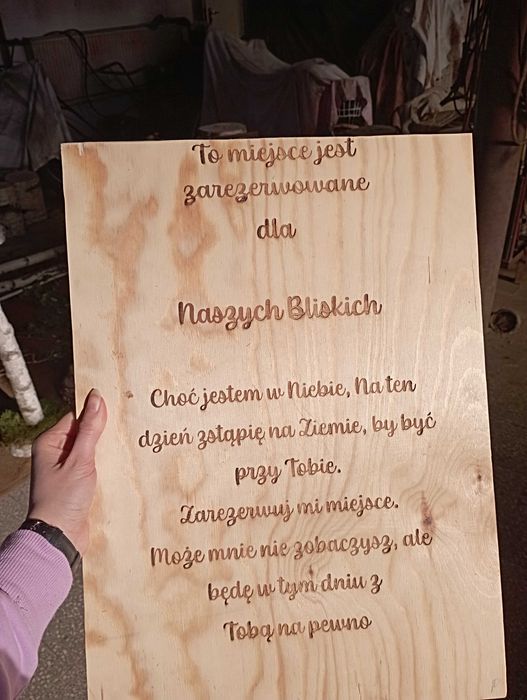 To miejsce jest
zarezerwowane
dla
Naszych Bliskich
Choć jestem w Niebie, Na ten
dzień zstąpię na Ziemie, by być
przy Tobie.
Zarezerwuj mi miejsce.
Może mnie nie zobaczysz, ale
będę w tym dniu z
Tobą na pewno